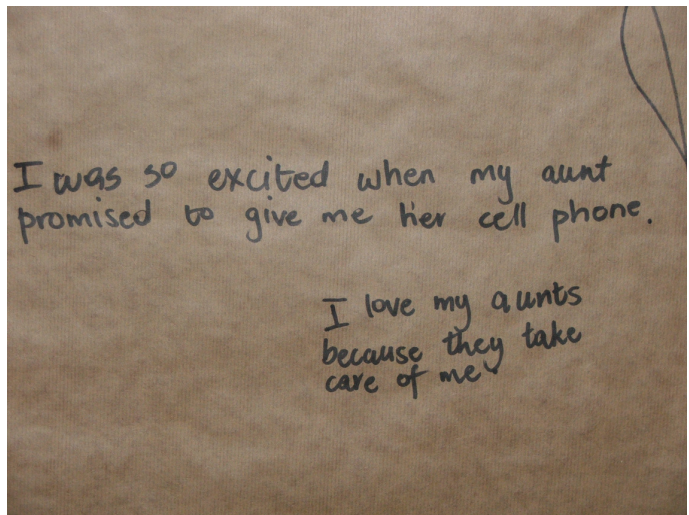 I was so excited when my aunt
promised to give me her cell phone.
I love my aunts
because they take
care of me.